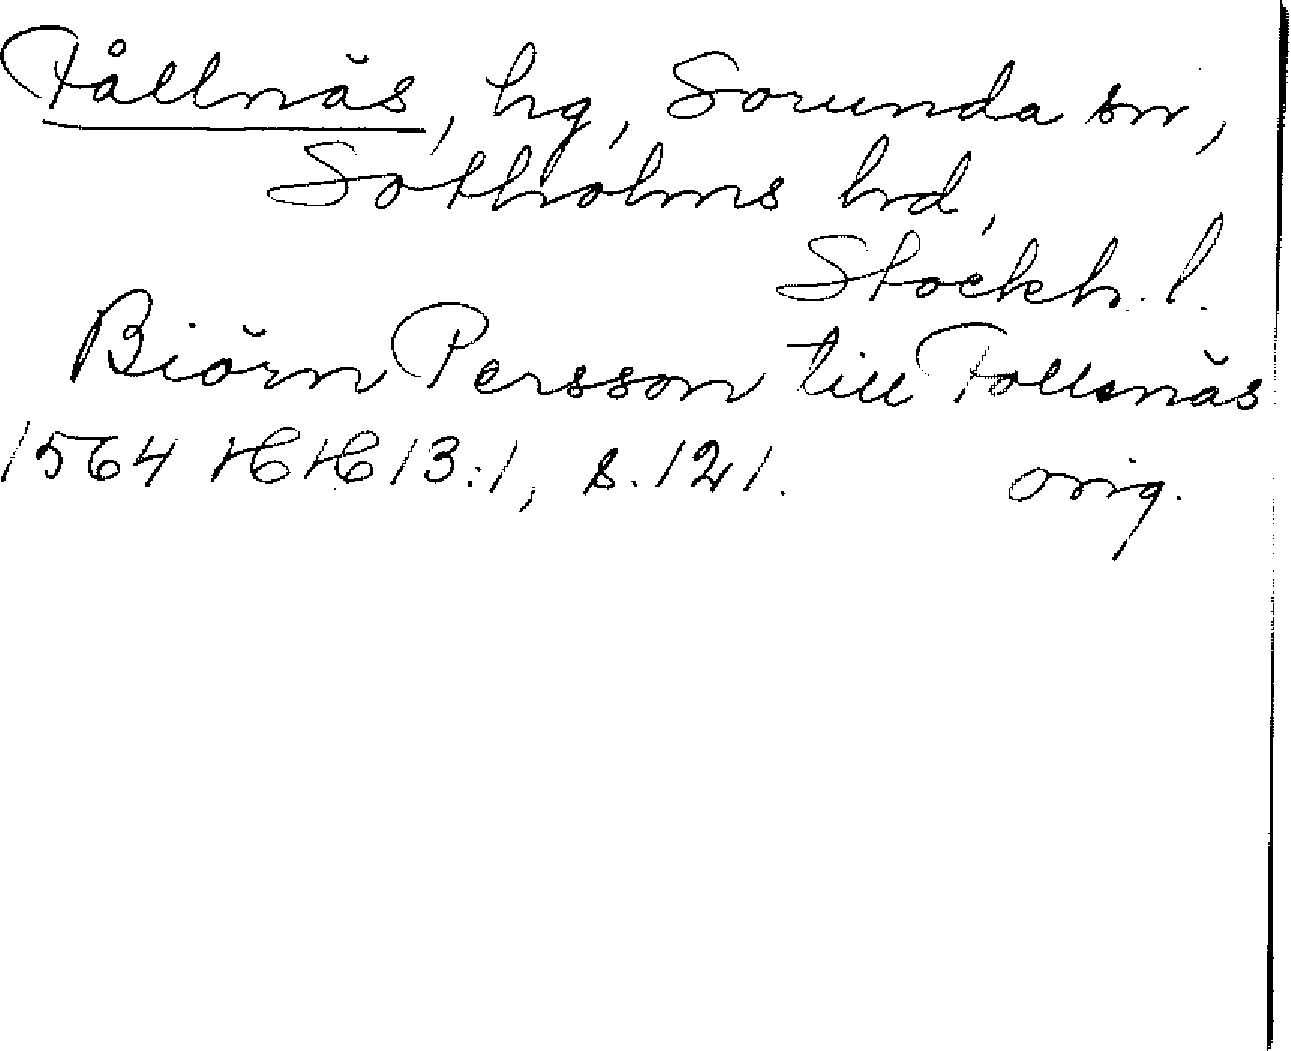 Fållnäs, hg, Sorunda sn,
Sotholms hd,
Stockh. l.
Biörn Persson till Follenäs
1564 HH 13:1, s. 121. orig.